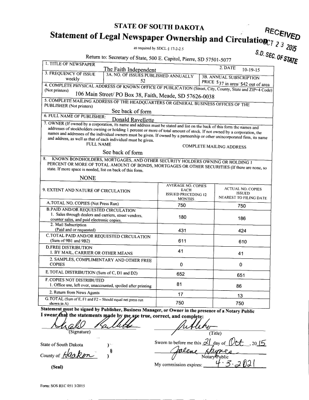 STATE OF SOUTH DAKOTA
Statement of Legal Newspaper Ownership and Circulation
RECEIVED
OCT 23 2015
S.D. SEC. OF STATE
as required by SDCL § 17-2-2.5
Return to: Secretary of State, 500 E. Capitol, Pierre, SD 57501-5077
1. TITLE OF NEWSPAPER
The Faith Independent
2. DATE
10-19-15
3. FREQUENCY OF ISSUE
weekly
3A. NO. OF ISSUES PUBLISHED ANNUALLY
52
3B. ANNUAL SUBSCRIPTION
PRICE $37 in area/ $42 out of area
4. COMPLETE PHYSICAL ADDRESS OF KNOWN OFFICE OF PUBLICATION (Street, City, County, State and ZIP+4 Code)
(Not printers)
106 Main Street/ PO Box 38, Faith, Meade, SD 57626-0038
5. COMPLETE MAILING ADDRESS OF THE HEADQUARTERS OR GENERAL BUSINESS OFFICES OF THE
PUBLISHER (Not printers)
See back of form
6. FULL NAME OF PUBLISHER:
Donald Ravellette
7. OWNER (If owned by a corporation, its name and address must be stated and list on the back of this form the names and
addresses of stockholders owning or holding 1 percent or more of total amount of stock. If not owned by a corporation, the
names and addresses of the individual owners must be given. If owned by a partnership or other unincorporated firm, its name
and address, as well as that of each individual must be given.
FULL NAME
COMPLETE MAILING ADDRESS
See back of form
8. KNOWN BONDHOLDERS, MORTGAGES, AND OTHER SECURITY HOLDERS OWNING OR HOLDING 1
PERCENT OR MORE OF TOTAL AMOUNT OF BONDS, MORTGAGES OR OTHER SECURITIES (If there are none, so
state. If more space is needed, list on back of this form.
NONE
9. EXTENT AND NATURE OF CIRCULATION
AVERAGE NO. COPIES
EACH
ISSUED PRECEDING 12
MONTHS
ACTUAL NO. COPIES
ISSUED
NEAREST TO FILING DATE
A. TOTAL NO. COPIES (Net Press Run)
750
750
B. PAID AND/OR REQUESTED CIRCULATION
1. Sales through dealers and carriers, street vendors,
counter sales, and paid electronic copies.
180
186
2. Mail Subscription
(Paid and or requested)
431
424
C. TOTAL PAID AND/OR REQUESTED CIRCULATION
(Sum of 9B1 and 9B2)
611
610
D. FREE DISTRIBUTION
1. BY MAIL, CARRIER OR OTHER MEANS
41
41
2. SAMPLES, COMPLIMENTARY AND OTHER FREE
COPIES
0
0
E. TOTAL DISTRIBUTION (Sum of C, D1 and D2)
652
651
F. COPIES NOT DISTRIBUTED
1. Office use, left over, unaccounted, spoiled after printing
81
86
2. Return from News Agents
17
13
G. TOTAL (Sum of E, F1 and F2 – Should equal net press run
shown in A)
750
750
Statement must be signed by Publisher, Business Manager, or Owner in the presence of a Notary Public
I swear that the statements made by me are true, correct, and complete:
(Signature)
Publisher
(Title)
State of South Dakota )
County of Haakon )
§
Sworn to before me this 21 day of Oct 2015
Notary Public
(Seal)
My commission expires: 4-3-2021